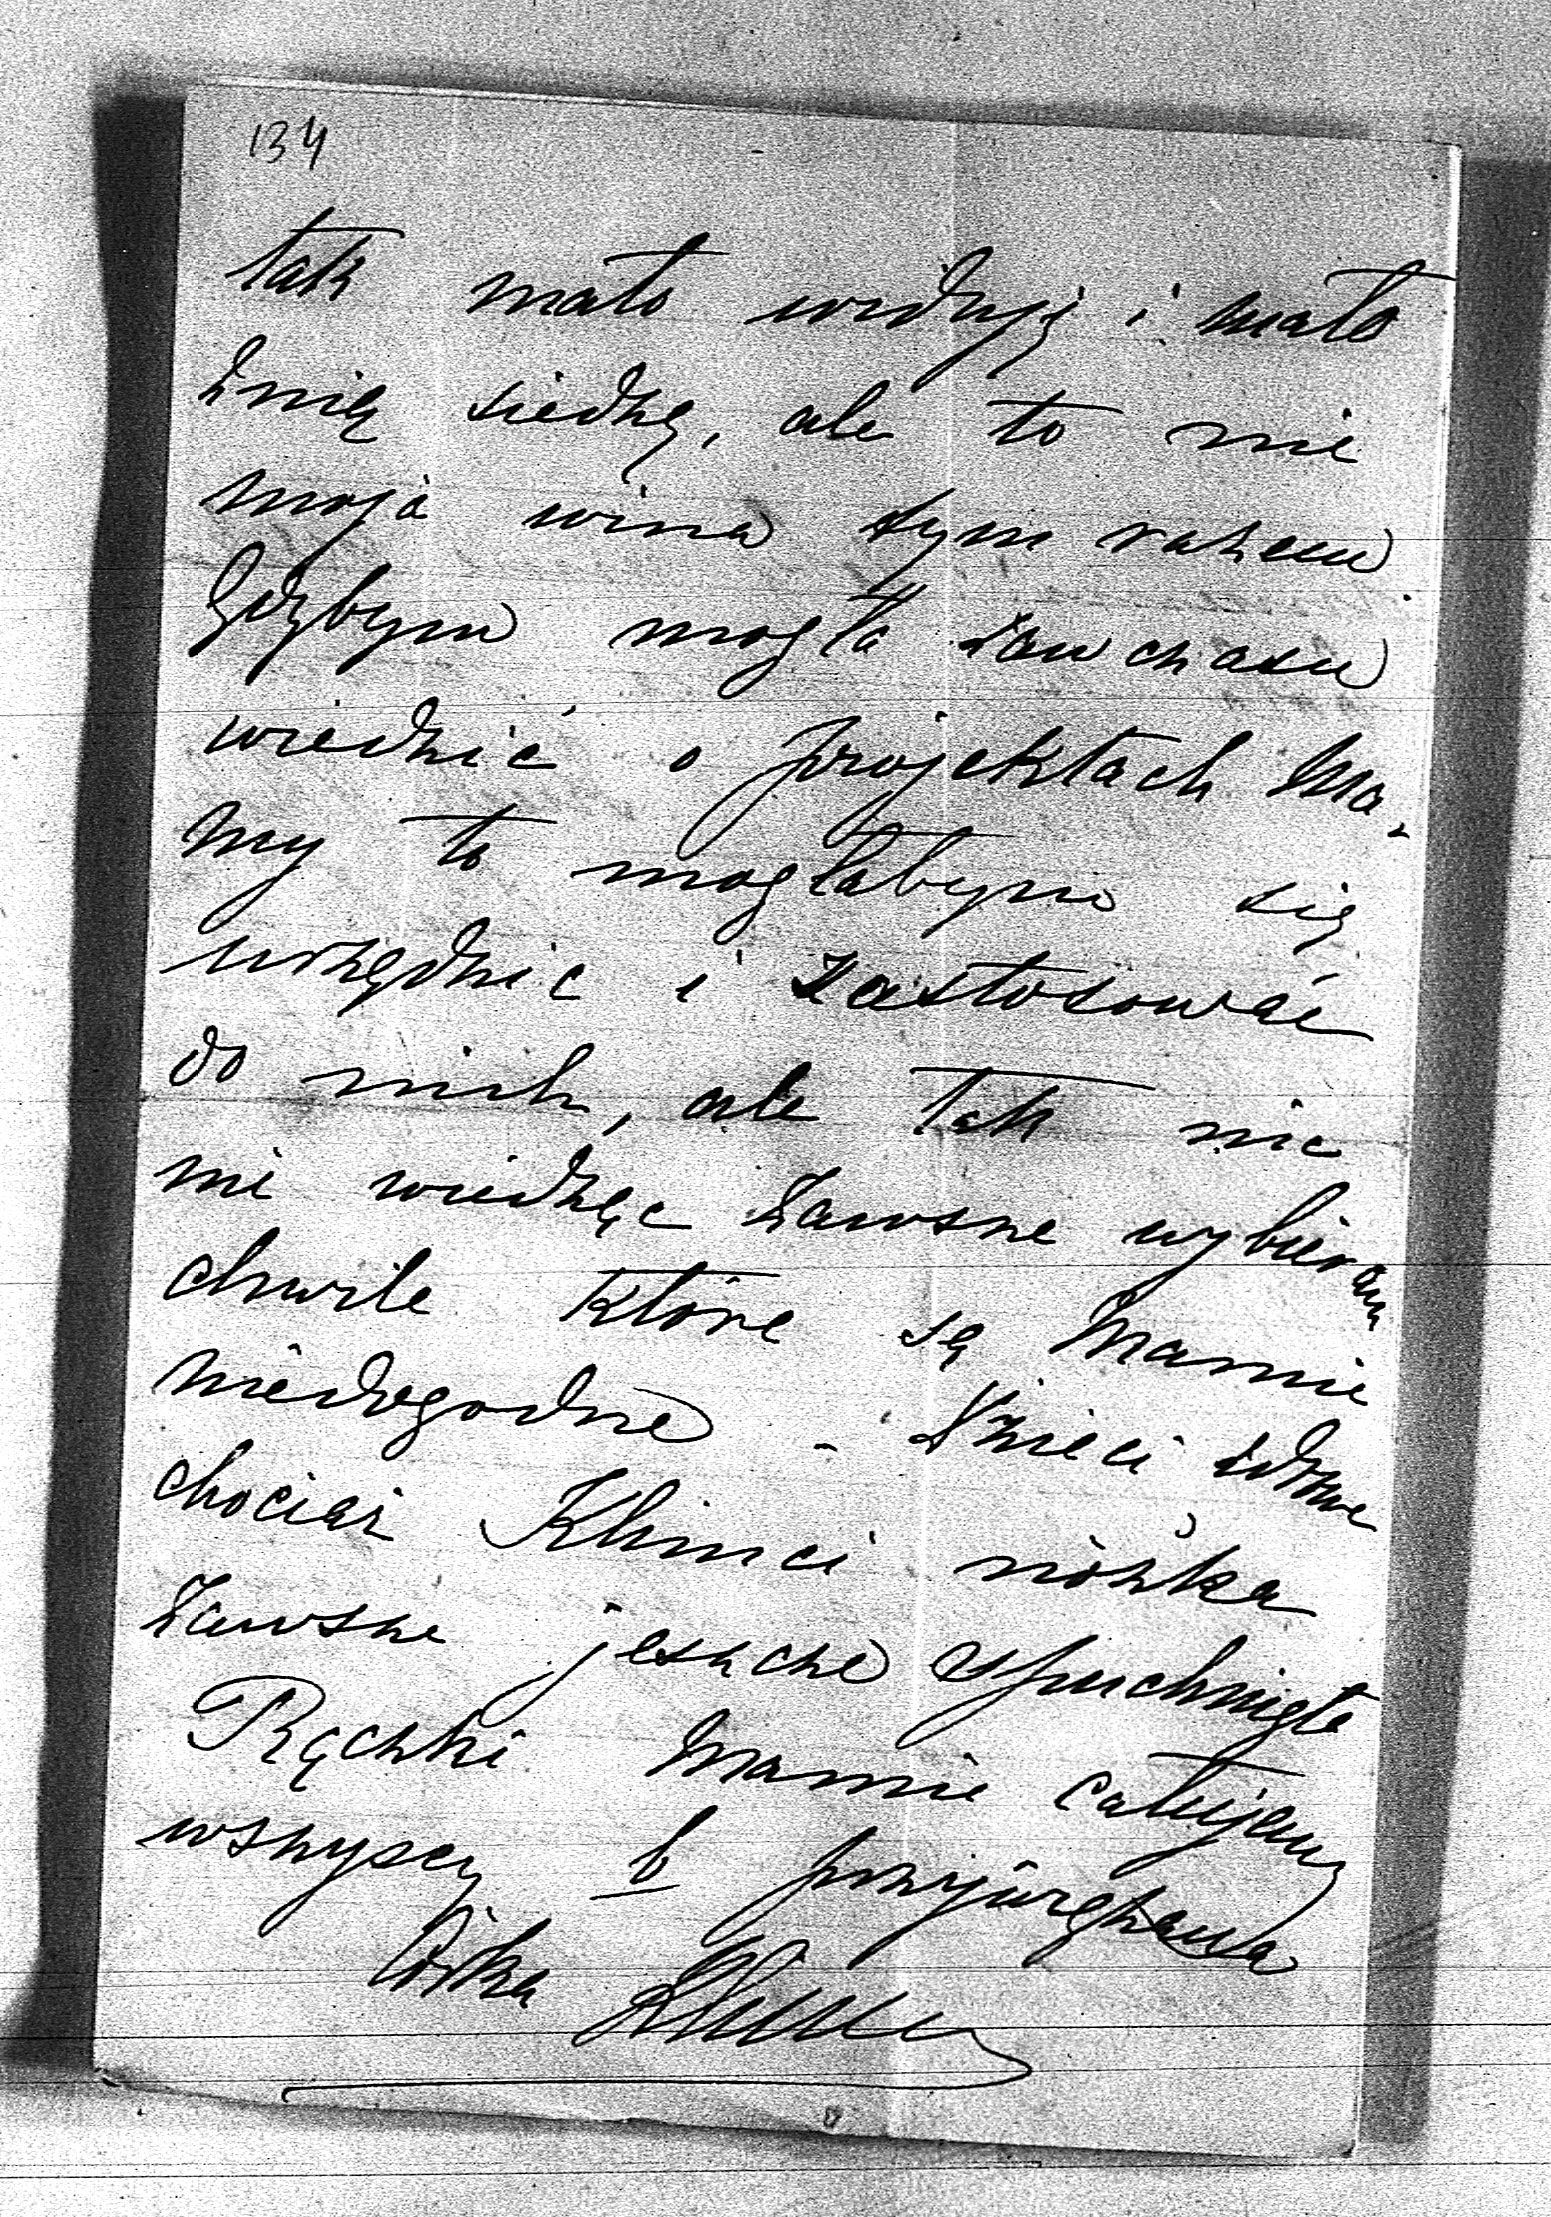 134
tak mało widuję i mało
z nią siedzę, ale to nie
moja wina tym razem
Gdybym mogła zawczasu
wiedzić o projektach Ma-
my to mogłabym się
urządzić i zastosować
do nich, ale tak nic
nie wiedząc zawsze wybieram
chwile które są Mamie
niedogodne - Dzieci zdrowe
chociaż Klimci nóżka
zawsze jeszcze spuchnięta
Rączki Mamie całujemy
wszyscy b przywiązana
Córka